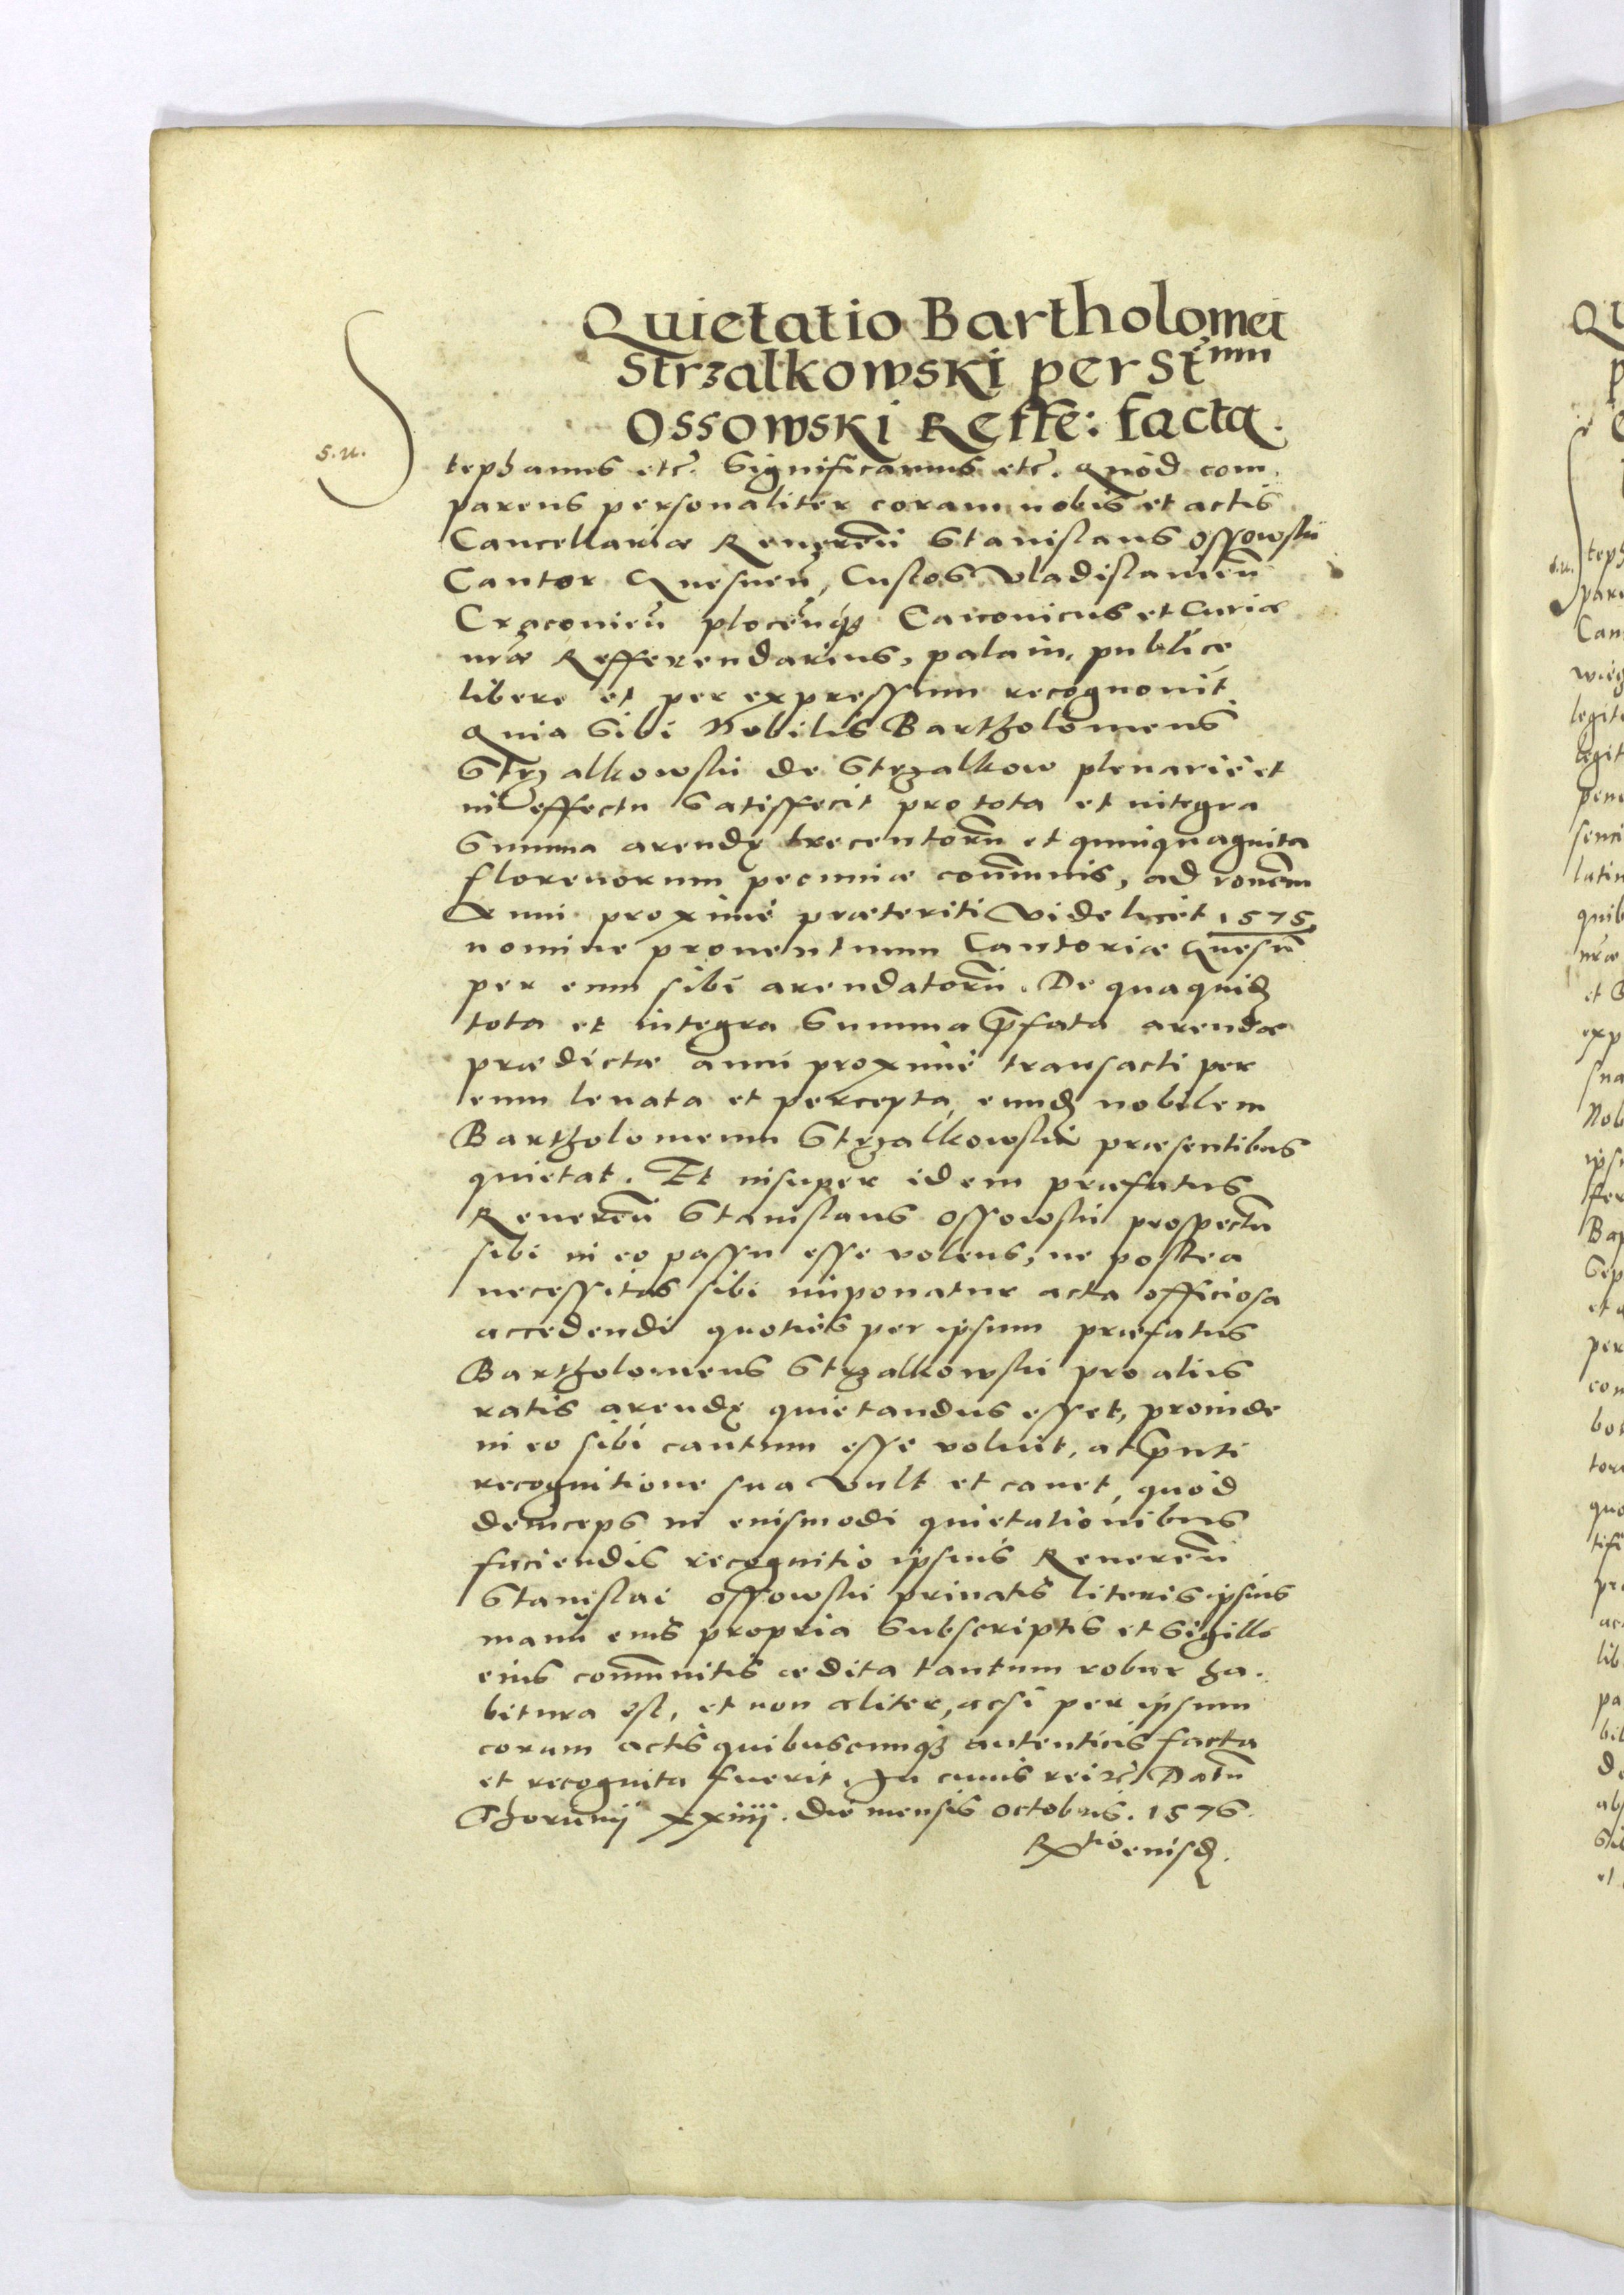 Quietatio Bartholomei
Strzalkowski per St^num
Ossowski Reffe: facta.
s.u.
Stephanus etc̃. Significamus etc̃. Quòd com
parens personaliter coram nobis et actis
Cancellariæ Reuereñ Stanislaus Ossowskii
Cantor Gnesneñ, Custos Vladislauieñ
Cracouieñ plocenq̃ꝫ Canonicus et Curiæ
nr̃æ Refferendarius, palam, publicè
liberè et per expressum recognouit
Quia Sibi Nobilis Bartholomeus
Strzalkowskii de Strzalkow plenariè et
in effectu Satisfecit pro tota et integra
Summa arendę trecentorũ et quinquaginta
florenorum pecuniæ com̃unis, ad rõnem
Anni proximè præteriti videlicet 1575,
nomine prouentuum Cantoriæ Gnesñ
per eum sibi arendatorũ. De qua quidẽ
tota et integra Summa p̃fata arendæ
prædictæ anni proximè transacti per
eum leuata et percepta, eundẽ nobilem
Bartholomeum Strzalkowskii præsentibus
quietat. Et insuper idem præfatus
Reuereñ Stanislaus Ossowskii prospectũ
sibi in eo passu esse volens, ne postea
necessitas sibi imponatur acta officiosa
accedendi quoties per ipsum præfatus
Bartholomeus Strzalkowskii pro aliis
ratis arendę quietandus esset, proinde
in eo sibi cautum esse voluit, ac p̃nti
recognitione sua vult et cauet, quòd
deinceps in eiusmodi quietationibus
faciendis recognitio ipsius Reuereñ
Stanislai Ossowskii priuatis literis ipsius
manu eius propria Subscriptis et Sigillo
eius com̃unitis ædita tantum robur ha
bitura est, et non aliter, acsi per ipsum
coram actis quibuscunq̃ꝫ autenticis facta
et recognita fuerit. In cuius rei etc̃. Datũ
Thorunij xxiiij. die mensis octobris. 1576.
R^tio eiusdẽ.